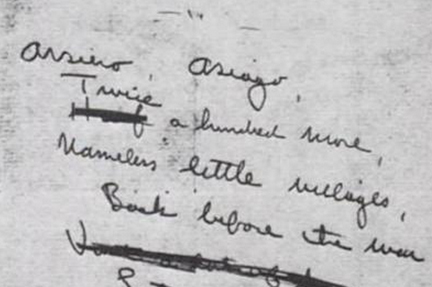 Arsiero, Asiago,
Twice
a hundred more,
Nameless little villages,
Back before the war